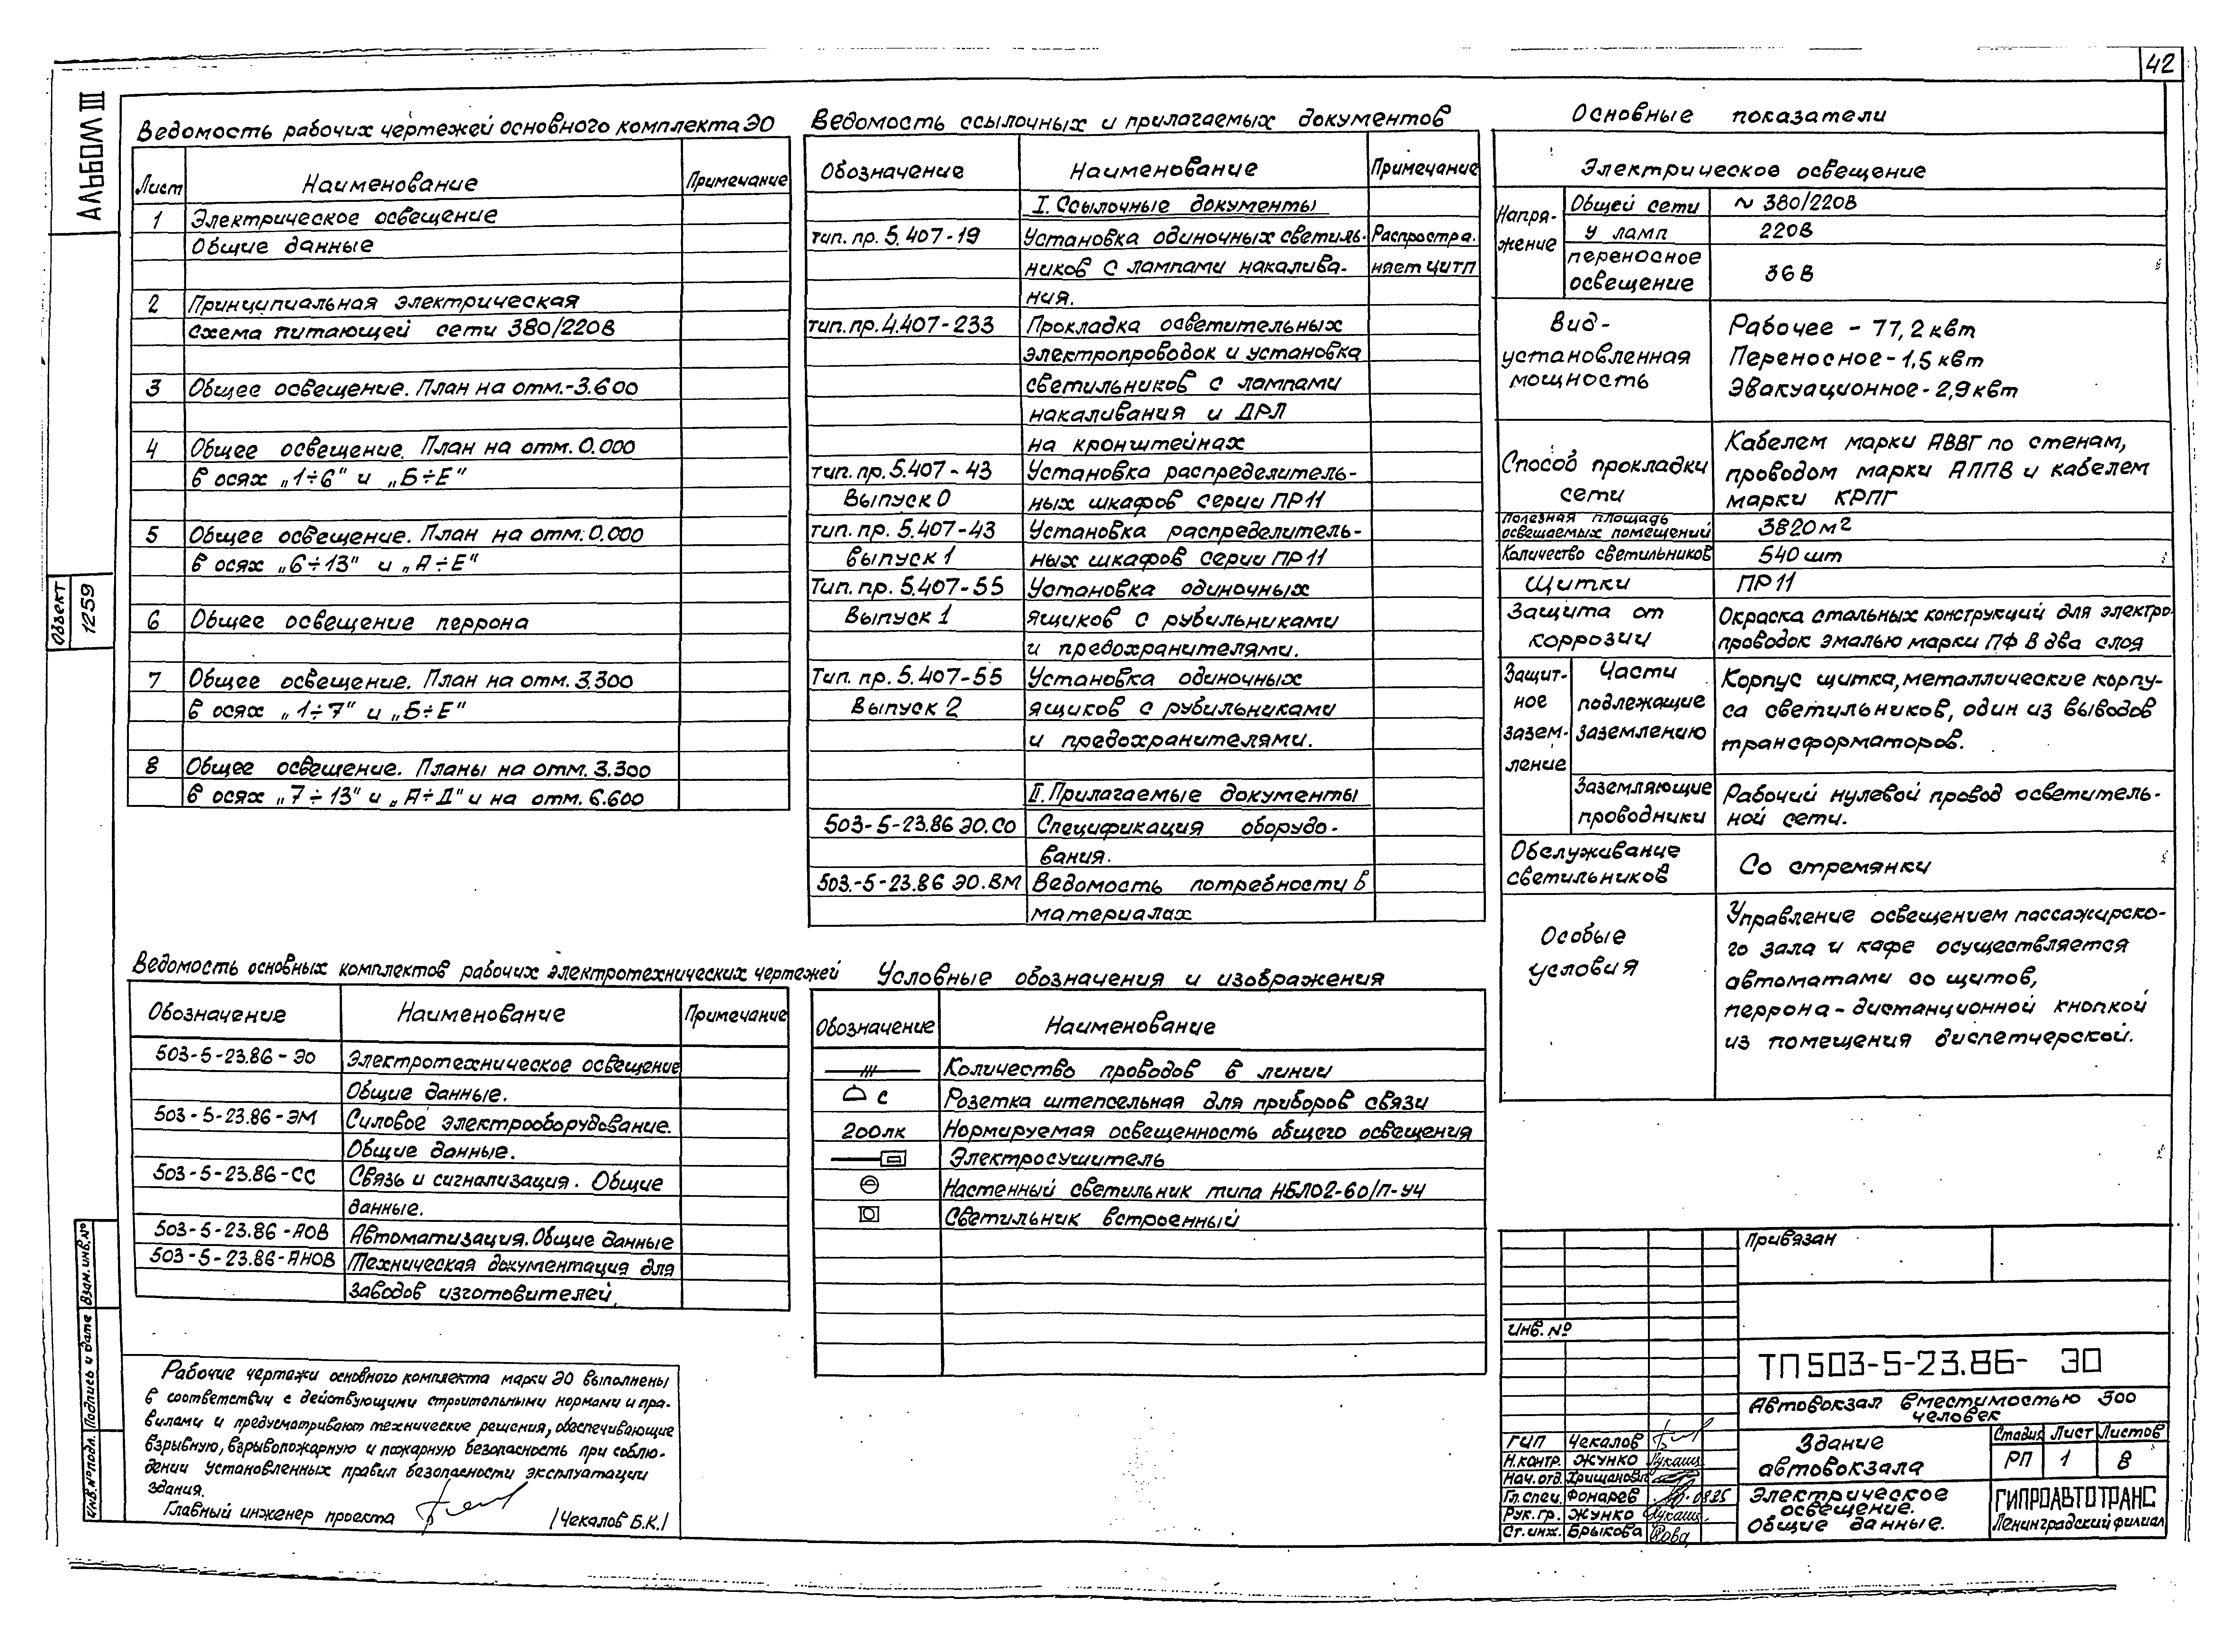 42
АЛЬБОМ III
Объект
1259
Взам. инв. №
Подпись и дата
Инв. № подл.
Ведомость рабочих чертежей основного комплекта ЭО
Лист Наименование Примечание
1 Электрическое освещение
Общие данные
2 Принципиальная электрическая
схема питающей сети 380/220В
3 Общее освещение. План на отм.-3.600
4 Общее освещение. План на отм. 0.000
в осях „1÷6" и „Б÷Е"
5 Общее освещение. План на отм. 0.000
в осях „6÷13" и „А÷Е"
6 Общее освещение перрона
7 Общее освещение. План на отм. 3.300
в осях „1÷7" и „Б÷Е"
8 Общее освещение. Планы на отм. 3.300
в осях „7÷13" и „А÷Д" и на отм. 6.600
Ведомость основных комплектов рабочих электротехнических чертежей
Обозначение Наименование Примечание
503-5-23.86-ЭО Электротехническое освещение
Общие данные.
503-5-23.86-ЭМ Силовое электрооборудование.
Общие данные.
503-5-23.86-СС Связь и сигнализация. Общие
данные.
503-5-23.86-АОВ Автоматизация. Общие данные
503-5-23.86-АНОВ Техническая документация для
заводов изготовителей.
Рабочие чертежи основного комплекта марки ЭО выполнены
в соответствии с действующими строительными нормами и пра-
вилами и предусматривают технические решения, обеспечивающие
взрывную, взрывопожарную и пожарную безопасность при соблю-
дении установленных правил безопасности эксплуатации
здания.
Главный инженер проекта /Чекалов Б.К./
Ведомость ссылочных и прилагаемых документов
Обозначение Наименование Примечание
I. Ссылочные документы
тип. пр. 5.407-19 Установка одиночных светиль- Распростра-
ников с лампами накалива- няет ЦИТП
ния.
тип. пр. 4.407-233 Прокладка осветительных
электропроводок и установка
светильников с лампами
накаливания и ДРЛ
на кронштейнах
тип. пр. 5.407-43 Установка распределитель-
Выпуск 0 ных шкафов серии ПР11
тип. пр. 5.407-43 Установка распределитель-
выпуск 1 ных шкафов серии ПР11
Тип. пр. 5.407-55 Установка одиночных
Выпуск 1 ящиков с рубильниками
и предохранителями.
Тип. пр. 5.407-55 Установка одиночных
Выпуск 2 ящиков с рубильниками
и предохранителями.
II. Прилагаемые документы
503-5-23.86 ЭО.СО Спецификация оборудо-
вания.
503.-5-23.86 ЭО.ВМ Ведомость потребности в
материалах
Условные обозначения и изображения
Обозначение Наименование
Количество проводов в линии
С Розетка штепсельная для приборов связи
200лк Нормируемая освещенность общего освещения
Электросушитель
Настенный светильник типа НБЛ02-60/П-У4
Светильник встроенный
Основные показатели
Электрическое освещение
Напря-
жение
Общей сети ~ 380/220В
у ламп 220В
переносное
освещение 36В
Вид-
установленная
мощность
Рабочее - 77,2 квт
Переносное - 1,5 квт
Эвакуационное - 2,9 квт
Способ прокладки
сети
Кабелем марки АВВГ по стенам,
проводом марки АППВ и кабелем
марки КРПГ
Полезная площадь
освещаемых помещений 3820 м2
Количество светильников 540 шт
Щитки ПР11
Защита от
коррозии
Окраска стальных конструкций для электро-
проводок эмалью марки ПФ в два слоя
Защит-
ное
зазем-
ление
Части
подлежащие
заземлению
Корпус щитка, металлические корпу-
са светильников, один из выводов
трансформаторов.
Заземляющие
проводники
Рабочий нулевой провод осветитель-
ной сети.
Обслуживание
светильников
Со стремянки
Особые
условия
Управление освещением пассажирско-
го зала и кафе осуществляется
автоматами со щитов,
перрона - дистанционной кнопкой
из помещения диспетчерской.
Привязан
Инв. №
ТП 503-5-23.86- ЭО
Автовокзал вместимостью 300
человек
ГИП Чекалов
Н.контр. Жунко
Нач.отд. Хрищанович
Гл.спец. Фонарев
Рук.гр. Жунко
Ст.инж. Брыкова
Здание
автовокзала
Стадия Лист Листов
РП 1 8
Электрическое
освещение.
Общие данные.
ГИПРОАВТОТРАНС
Ленинградский филиал